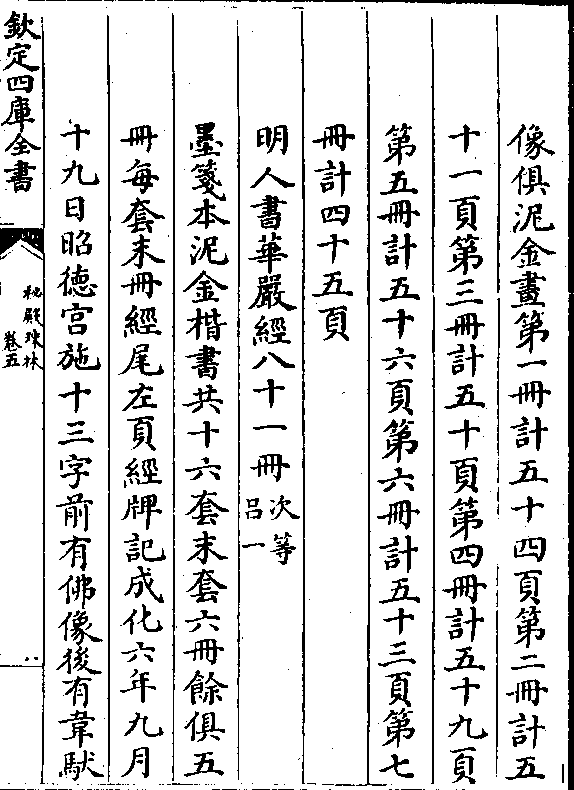 像俱泥金畫第一冊計五十四頁第二冊計五
十一頁第三冊計五十頁第四冊計五十九頁
第五冊計五十六頁第六冊計五十三頁第七
冊計四十五頁
明人書華嚴經八十一冊次等
吕一
墨箋本泥金楷書共十六套末套六冊餘俱五
冊每套末冊經尾左頁經牌記成化六年九月
十九日昭德宫施十三字前有佛像後有韋馱
欽定四庫全書
秘殿珠林
卷五